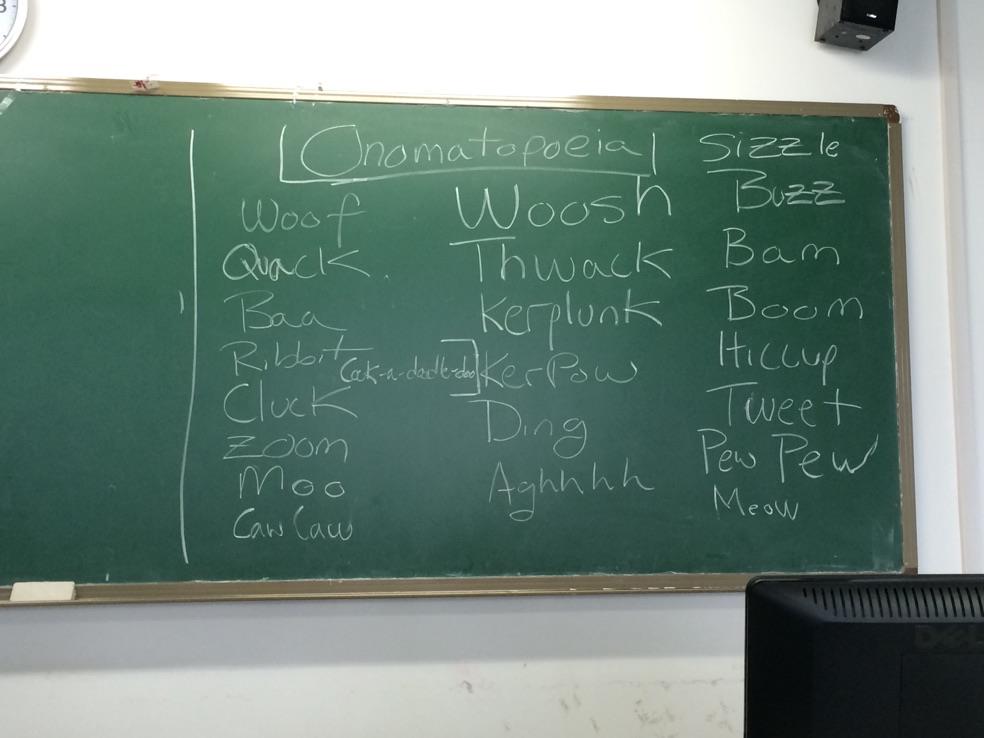 Onomatopoeia
Woof
Quack.
Baa
Ribbit
Cock-a-doodle-doo
Cluck
Zoom
Moo
Caw Caw
Woosh
Thwack
Kerplunk
KerPow
Ding
Aghhhh
Sizzle
Buzz
Bam
Boom
Hiccup
Tweet
Pew Pew
Meow
DELL